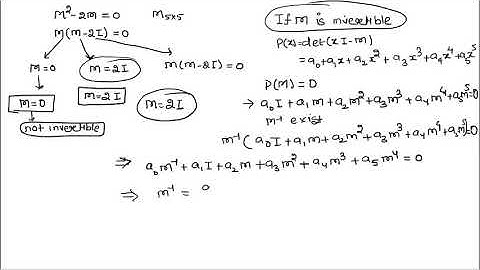 M²-2M=0 M₅ₓ₅
M(M-2I)=0
M=0 M=2I M(M-2I)=0
M=0 M=2I M=2I
not invertible
If M is invertible
P(x)=det(xI-M)
=a₀+a₁x+a₂x²+a₃x³+a₄x⁴+a₅x⁵
P(M)=0
→ a₀I+a₁M+a₂M²+a₃M³+a₄M⁴+a₅M⁵=0
M⁻¹ exist
M⁻¹(a₀I+a₁M+a₂M²+a₃M³+a₄M⁴+a₅M⁵)=0
⇒ a₀M⁻¹+a₁I+a₂M+a₃M²+a₄M³+a₅M⁴=0
⇒ M⁻¹=